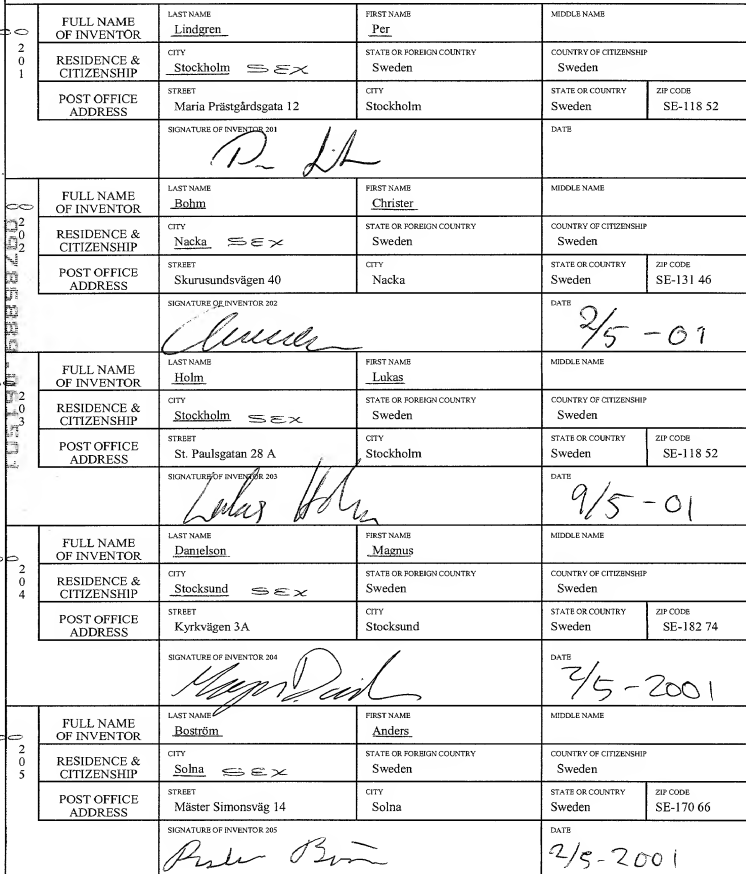 FULL NAME OF INVENTOR LAST NAME Lindgren FIRST NAME Per MIDDLE NAME
201 RESIDENCE & CITIZENSHIP CITY Stockholm SEX STATE OR FOREIGN COUNTRY Sweden COUNTRY OF CITIZENSHIP Sweden
POST OFFICE ADDRESS STREET Maria Prästgårdsgata 12 CITY Stockholm STATE OR COUNTRY Sweden ZIP CODE SE-118 52
SIGNATURE OF INVENTOR 201 DATE
FULL NAME OF INVENTOR LAST NAME Bohm FIRST NAME Christer MIDDLE NAME
202 RESIDENCE & CITIZENSHIP CITY Nacka SEX STATE OR FOREIGN COUNTRY Sweden COUNTRY OF CITIZENSHIP Sweden
POST OFFICE ADDRESS STREET Skurusundsvägen 40 CITY Nacka STATE OR COUNTRY Sweden ZIP CODE SE-131 46
SIGNATURE OF INVENTOR 202 DATE 2/5 -01
FULL NAME OF INVENTOR LAST NAME Holm FIRST NAME Lukas MIDDLE NAME
203 RESIDENCE & CITIZENSHIP CITY Stockholm SEX STATE OR FOREIGN COUNTRY Sweden COUNTRY OF CITIZENSHIP Sweden
POST OFFICE ADDRESS STREET St. Paulsgatan 28 A CITY Stockholm STATE OR COUNTRY Sweden ZIP CODE SE-118 52
SIGNATURE OF INVENTOR 203 Lukas Holm DATE 9/5 -01
FULL NAME OF INVENTOR LAST NAME Danielson FIRST NAME Magnus MIDDLE NAME
204 RESIDENCE & CITIZENSHIP CITY Stocksund SEX STATE OR FOREIGN COUNTRY Sweden COUNTRY OF CITIZENSHIP Sweden
POST OFFICE ADDRESS STREET Kyrkvägen 3A CITY Stocksund STATE OR COUNTRY Sweden ZIP CODE SE-182 74
SIGNATURE OF INVENTOR 204 DATE 2/5-2001
FULL NAME OF INVENTOR LAST NAME Boström FIRST NAME Anders MIDDLE NAME
205 RESIDENCE & CITIZENSHIP CITY Solna SEX STATE OR FOREIGN COUNTRY Sweden COUNTRY OF CITIZENSHIP Sweden
POST OFFICE ADDRESS STREET Mäster Simonsväg 14 CITY Solna STATE OR COUNTRY Sweden ZIP CODE SE-170 66
SIGNATURE OF INVENTOR 205 DATE 2/5-2001